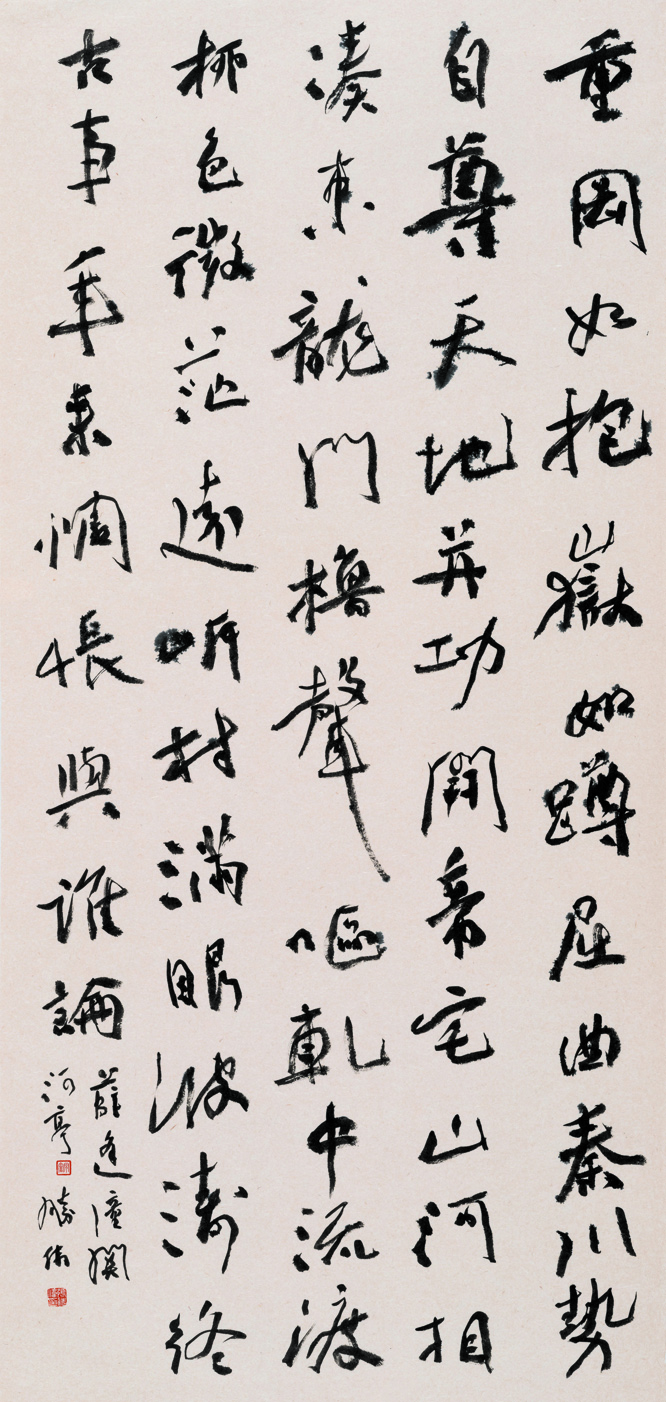 重岡如抱嶽如蹲屈曲秦川勢
自尊天地并功開帝宅山河相
湊束龍門櫓聲嘔軋中流渡
柳色微茫遠岸村滿眼波濤終
古事年來惆悵與誰論
薛逢潼關
河亭